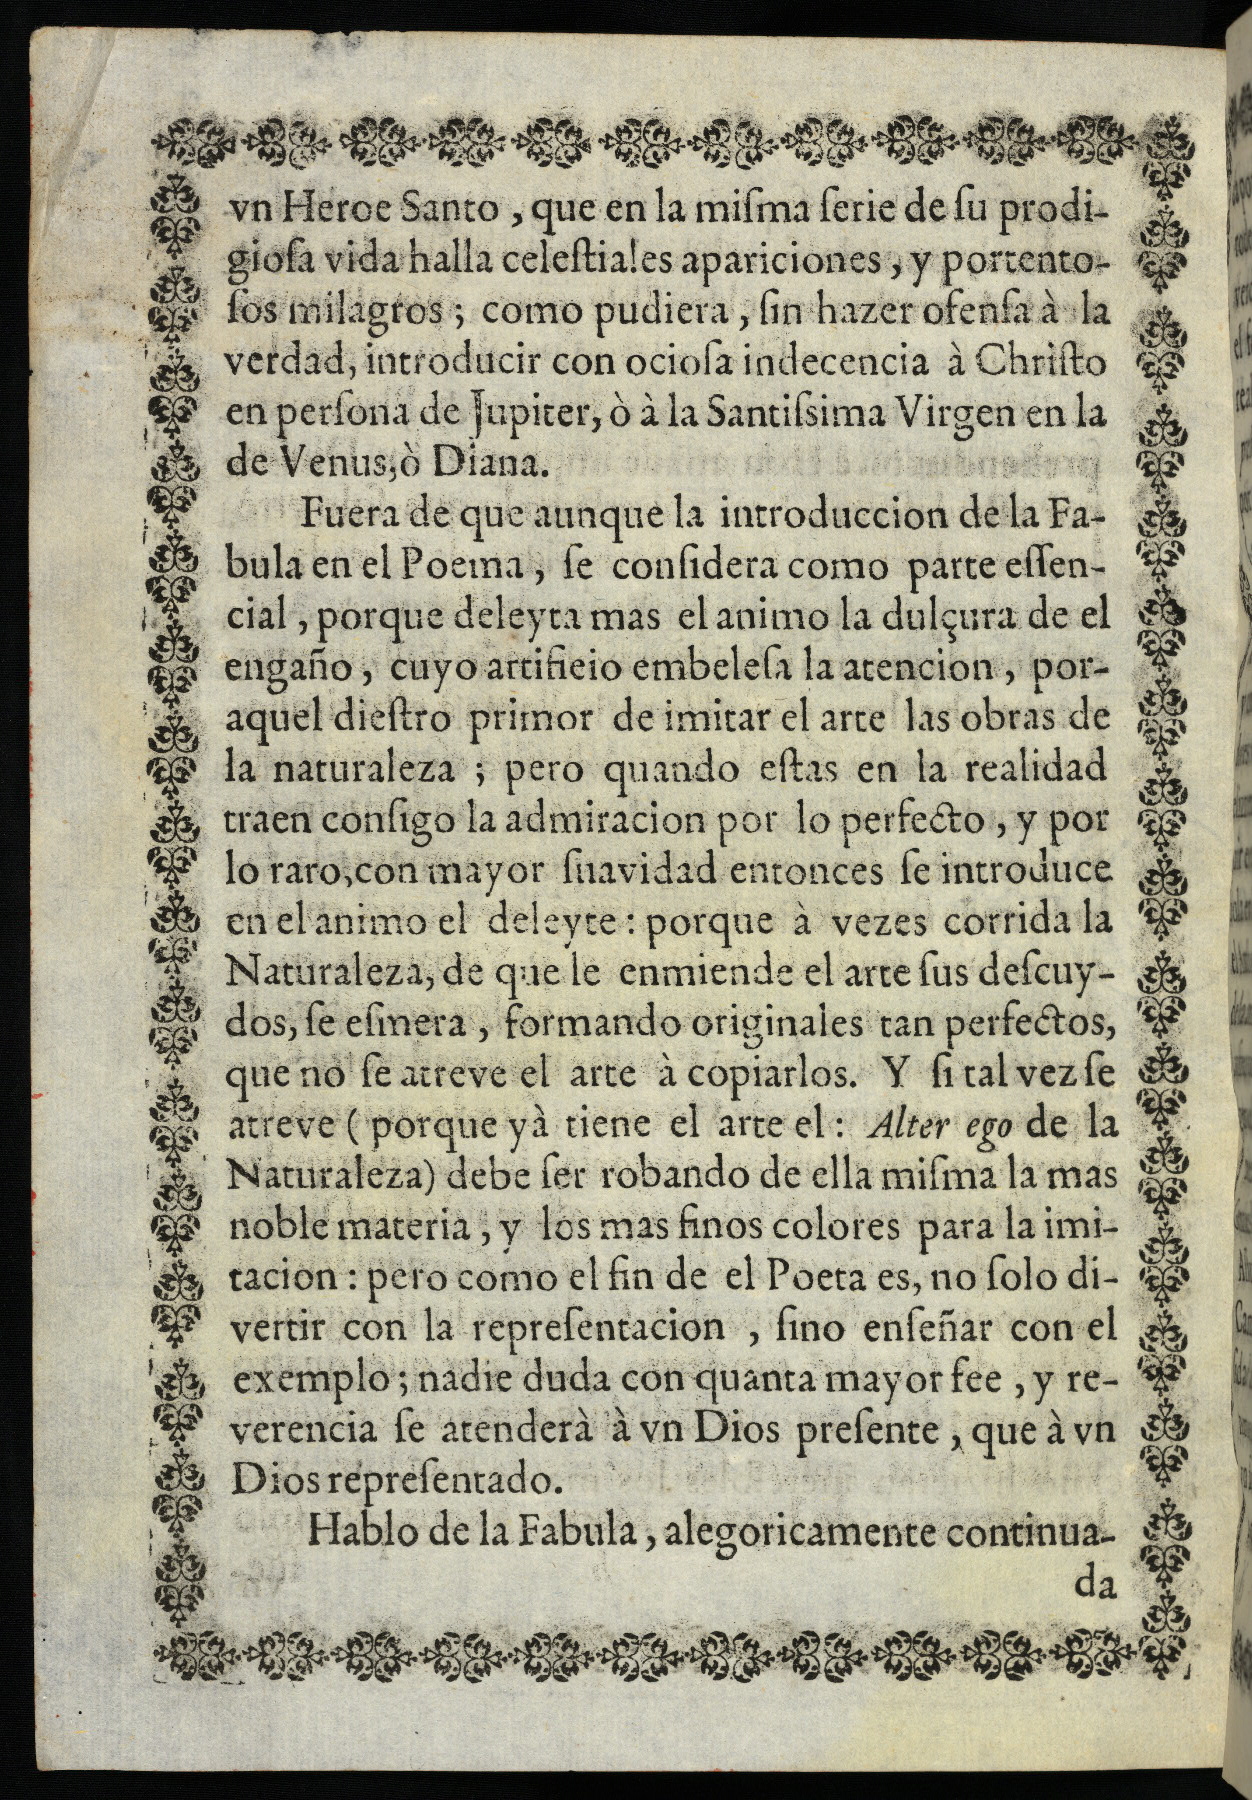 vn Heroe Santo , que en la miſma ſerie de ſu prodi-
gioſa vida halla celeſtiales apariciones , y portento-
ſos milagros ; como pudiera , ſin hazer ofenſa à la
verdad, introducir con ocioſa indecencia à Chriſto
en perſona de Jupiter, ò à la Santiſsima Virgen en la
de Venus, ò Diana.
Fuera de que aunque la introduccion de la Fa-
bula en el Poema , ſe conſidera como parte eſſen-
cial , porque deleyta mas el animo la dulçura de el
engaño , cuyo artifieio embeleſa la atencion , por-
aquel dieſtro primor de imitar el arte las obras de
la naturaleza ; pero quando eſtas en la realidad
traen conſigo la admiracion por lo perfecto , y por
lo raro, con mayor ſuavidad entonces ſe introduce
en el animo el deleyte : porque à vezes corrida la
Naturaleza, de que le enmiende el arte ſus deſcuy-
dos, ſe eſmera , formando originales tan perfectos,
que no ſe atreve el arte à copiarlos. Y ſi tal vez ſe
atreve ( porque yà tiene el arte el : Alter ego de la
Naturaleza) debe ſer robando de ella miſma la mas
noble materia , y los mas finos colores para la imi-
tacion : pero como el fin de el Poeta es, no ſolo di-
vertir con la repreſentacion , ſino enſeñar con el
exemplo ; nadie duda con quanta mayor fee , y re-
verencia ſe atenderà à vn Dios preſente , que à vn
Dios repreſentado.
Hablo de la Fabula , alegoricamente continua-
da